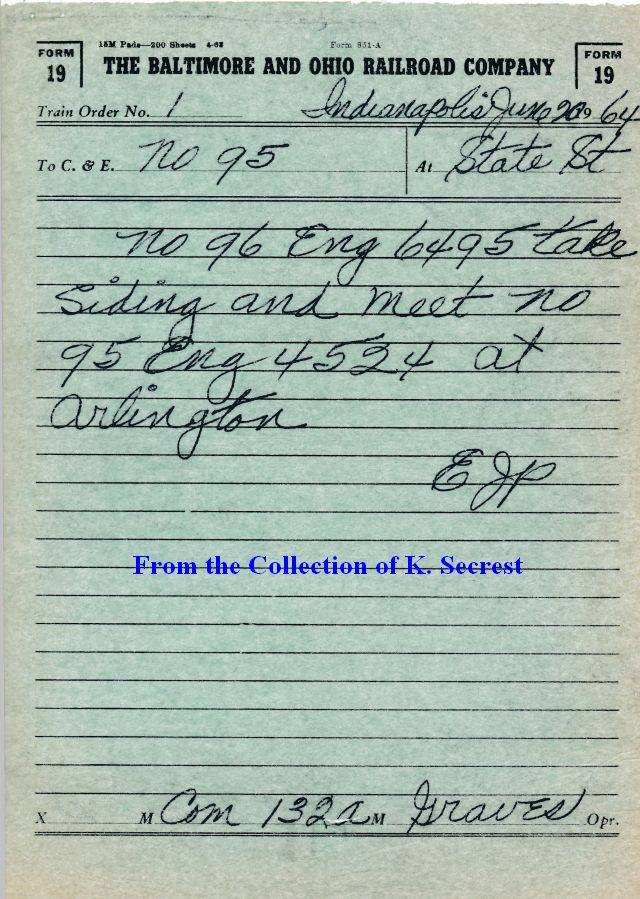 15M Pads—200 Sheets 4-63 Form 831-A
FORM 19 THE BALTIMORE AND OHIO RAILROAD COMPANY FORM 19
Train Order No. 1 Indianapolis June 20 1964
To C. & E. No 95 At State St
No 96 Eng 6495 take
Siding and meet no
95 Eng 4524 at
Arlington
EJP
From the Collection of K. Secrest
X M Com 132 a M Graves Opr.